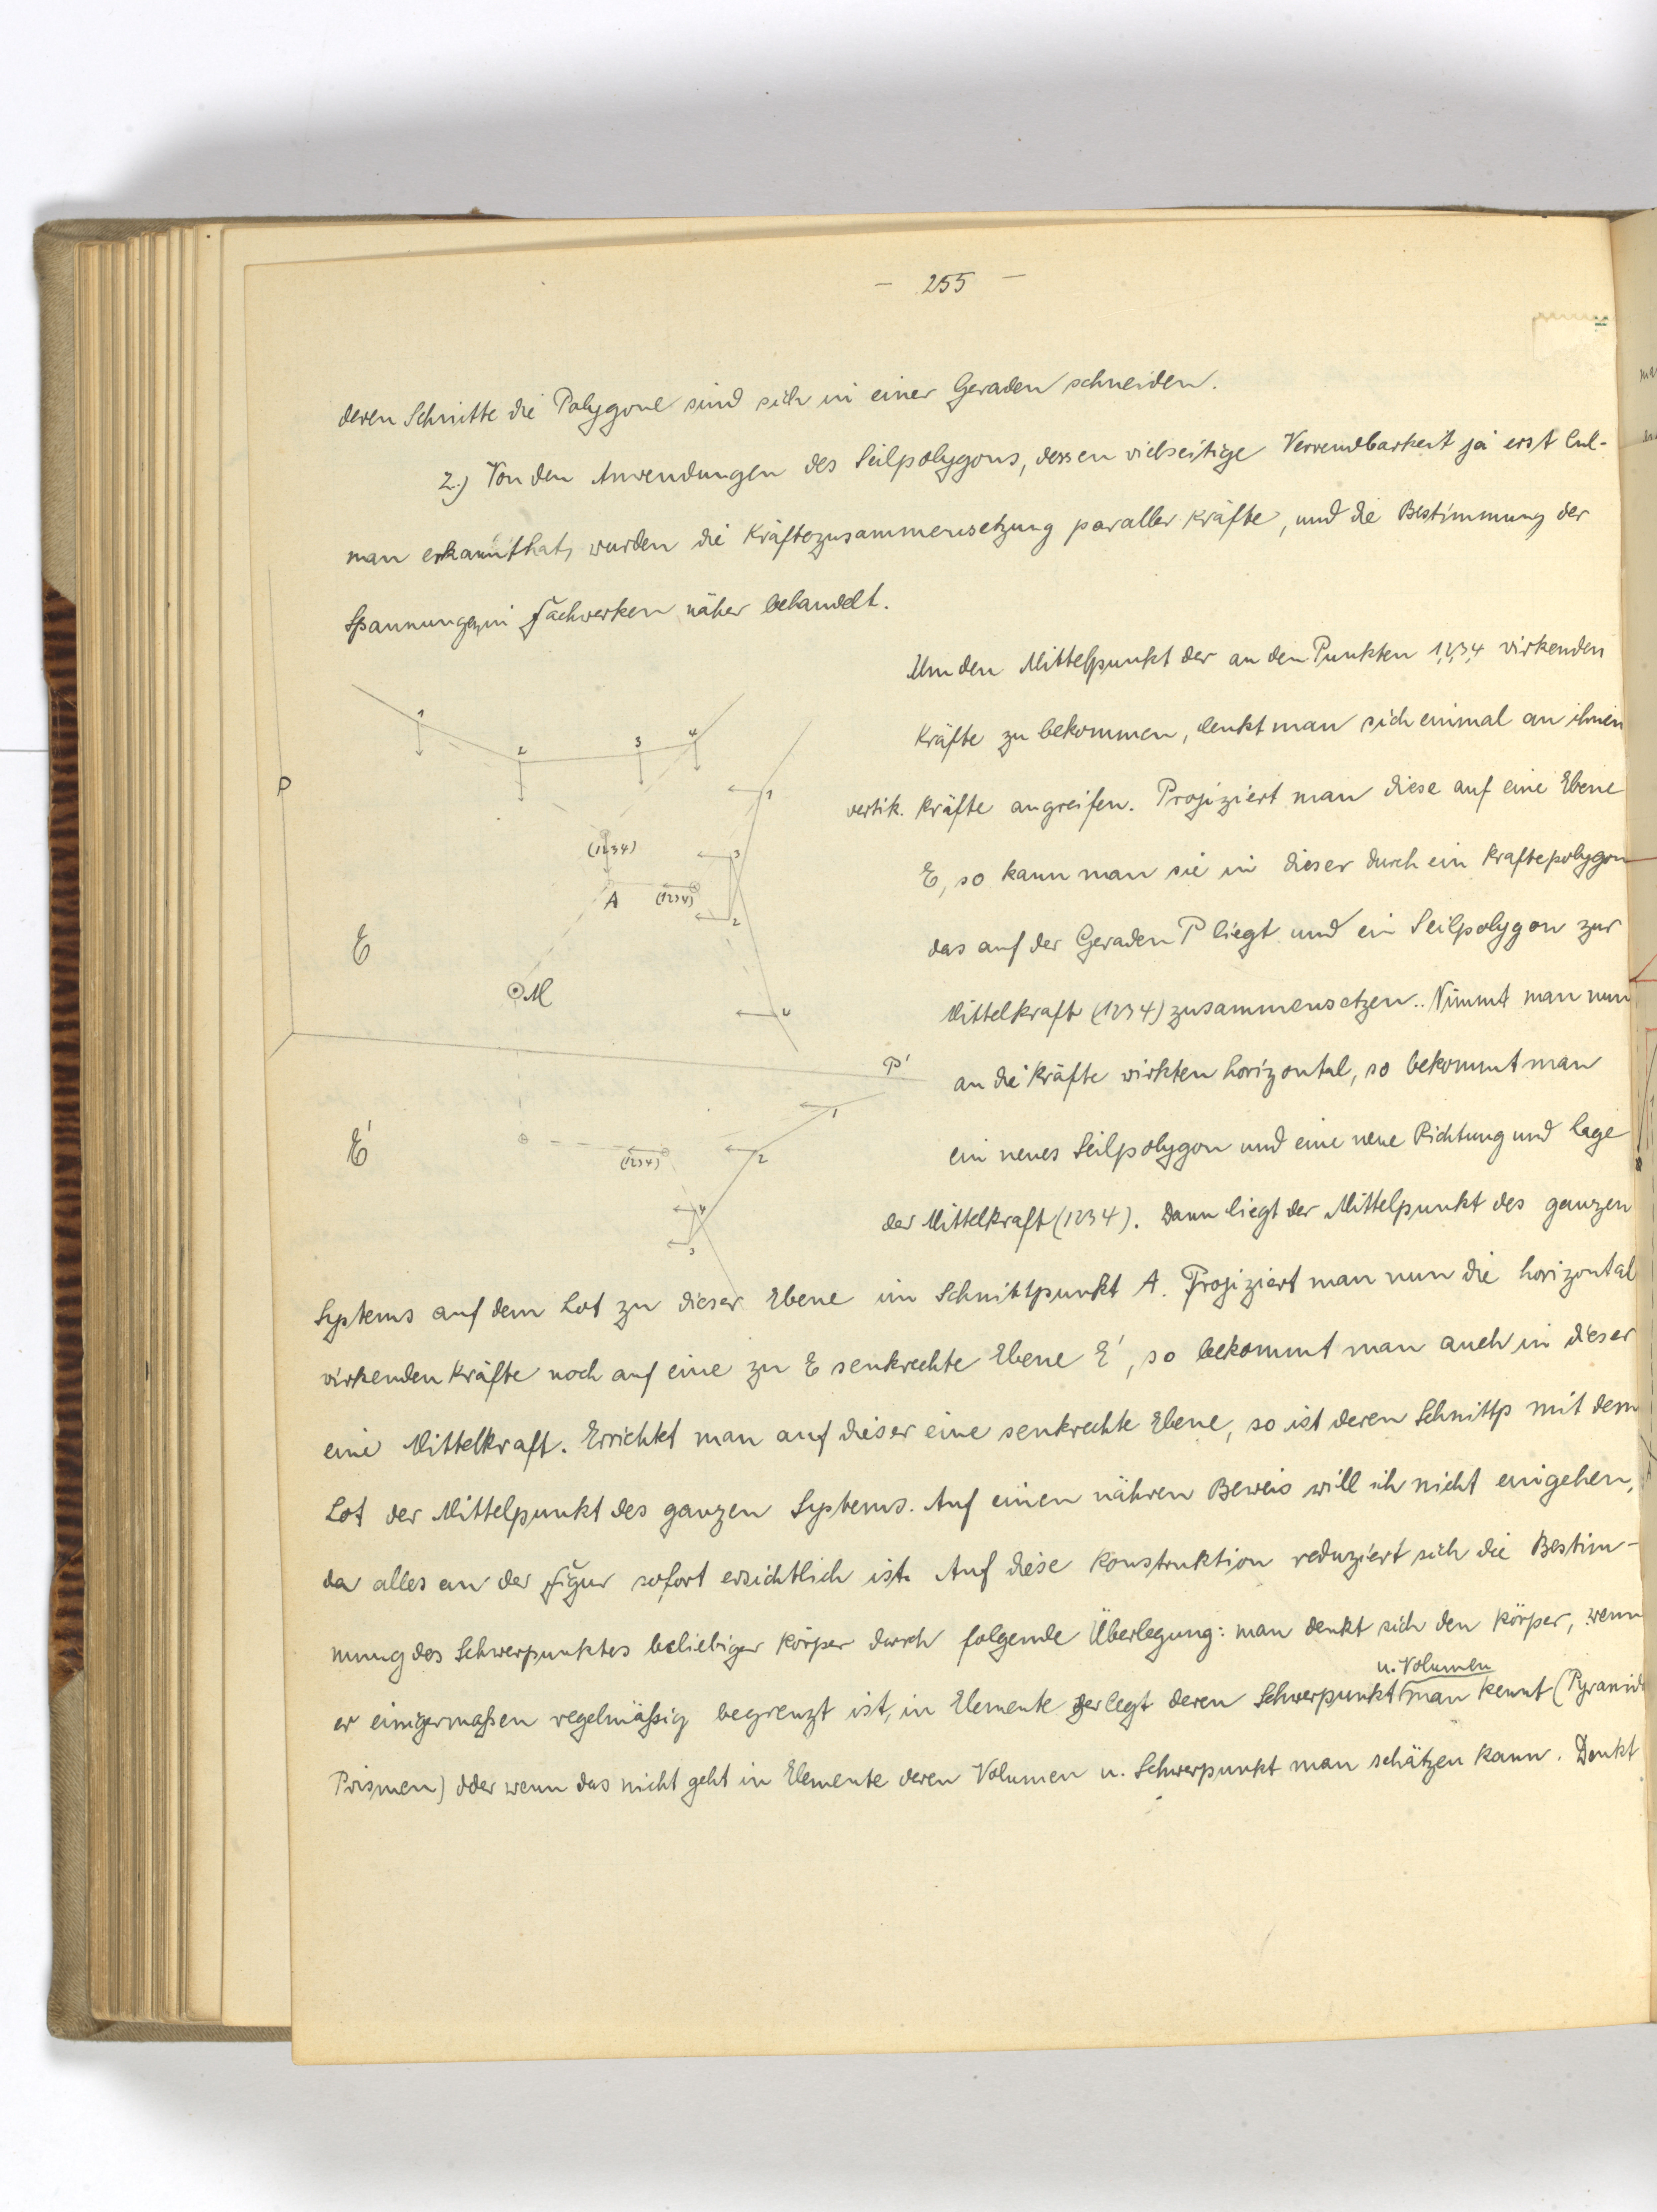 – 255 –
deren Schnitte die Polygone sind sich in einer Geraden schneiden.
2.) Von den Anwendungen des Seilpolygons, dessen vielseitige Verwendbarkeit ja erst Cul-
man erkannt hat, wurden die Kräftezusammensetzung paraller Kräfte, und die Bestimmung der
Spannungen in Fachwerken näher behandelt.
Um den Mittelpunkt der an den Punkten 1,2,3,4 wirkenden
Kräfte zu bekommen, denkt man sich einmal an ihnen
vertik. Kräfte angreifen. Projiziert man diese auf eine Ebene
E, so kann man sie in dieser durch ein Kraftepolygon
das auf der Geraden P liegt und ein Seilpolygon zur
Mittelkraft (1234) zusammensetzen. Nimmt man nun
an die Kräfte wirkten horizontal, so bekommt man
ein neues Seilpolygon und eine neue Richtung und Lage
der Mittelkraft (1234). Dann liegt der Mittelpunkt des ganzen
Systems auf dem Lot zu dieser Ebene im Schnittpunkt A. Projiziert man nun die horizontal
wirkenden Kräfte noch auf eine zu E senkrechte Ebene E', so bekommt man auch in dieser
eine Mittelkraft. Errichtet man auf dieser eine senkrechte Ebene, so ist deren Schnittp mit dem
Lot der Mittelpunkt des ganzen Systems. Auf einen nähren Beweis will ich nicht eingehen,
da alles an der Figur sofort ersichtlich ist. Auf diese Konstruktion reduziert sich die Bestim-
mung des Schwerpunktes beliebiger Körper durch folgende Überlegung: man denkt sich den Körper, wenn
u. Volumen
er einigermaßen regelmäßig begrenzt ist, in Elemente zerlegt deren Schwerpunkt man kennt (Pyramide
Prismen) oder wenn das nicht geht in Elemente deren Volumen u. Schwerpunkt man schätzen kann. Denkt
1
2
3
4
P
(1234)
A
(1234)
1
3
2
4
E
M
P'
E'
1
2
(1234)
4
3